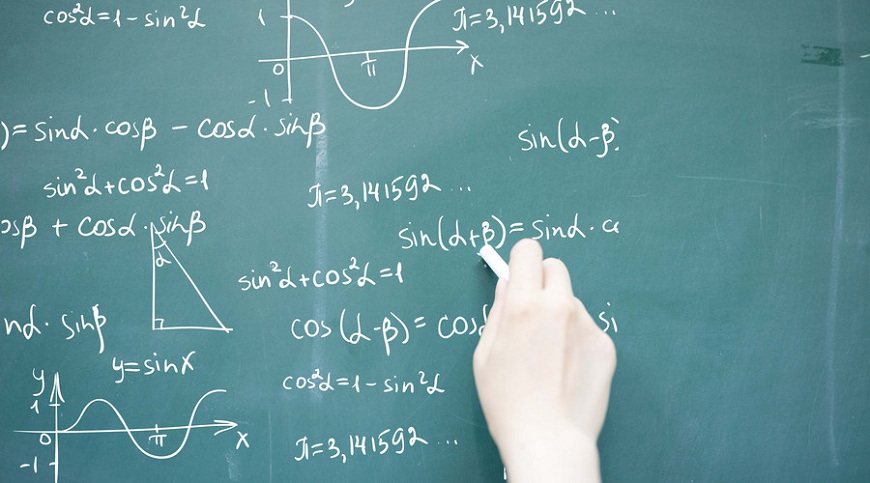 cos²α=1-sin²α
1
0
-1
π
x
π=3,141592 ...
)=sinα·cosβ - cosα·sinβ
sin(α-β)
sin²α+cos²α=1
π=3,141592 ...
osβ + cosα·sinβ
sin(α+β)=sinα·c
α
sin²α+cos²α=1
nα·sinβ
cos(α-β)=cosα si
y=sinx
y
1
0
-1
π
x
cos²α=1-sin²α
π=3,141592 ...